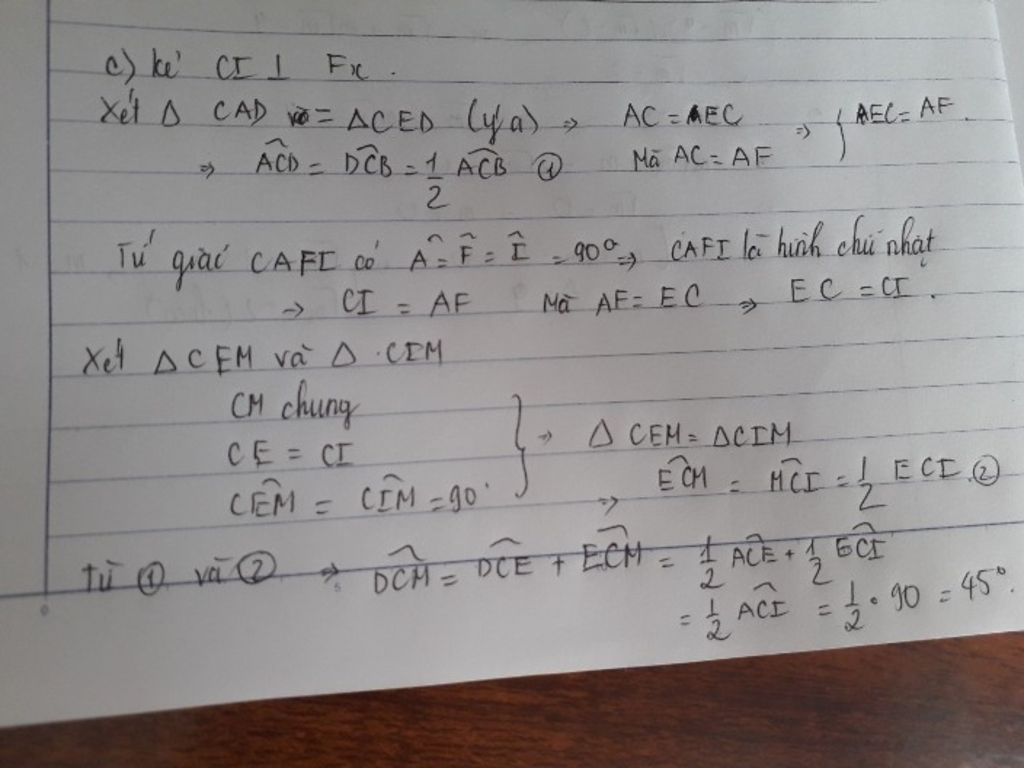 c) kẻ CI ⊥ Fx.
Xét Δ CAD = ΔCED (ý a) ⇒ AC = EC ⇒ } EC = AF.
⇒ ACD = DCB = 1/2 ACB ① Mà AC = AF
Tứ giác CAFI có A = F = I = 90° ⇒ CAFI là hình chữ nhật
→ CI = AF Mà AF = EC ⇒ EC = CI.
Xét ΔCEM và Δ CIM
CM chung
CE = CI } ⇒ Δ CEM = ΔCIM
CEM = CIM = 90° ⇒ ECM = MCI = 1/2 ECI ②
Từ ① và ② ⇒ DCM = DCE + ECM = 1/2 ACE + 1/2 ECI
= 1/2 ACI = 1/2 . 90 = 45°.